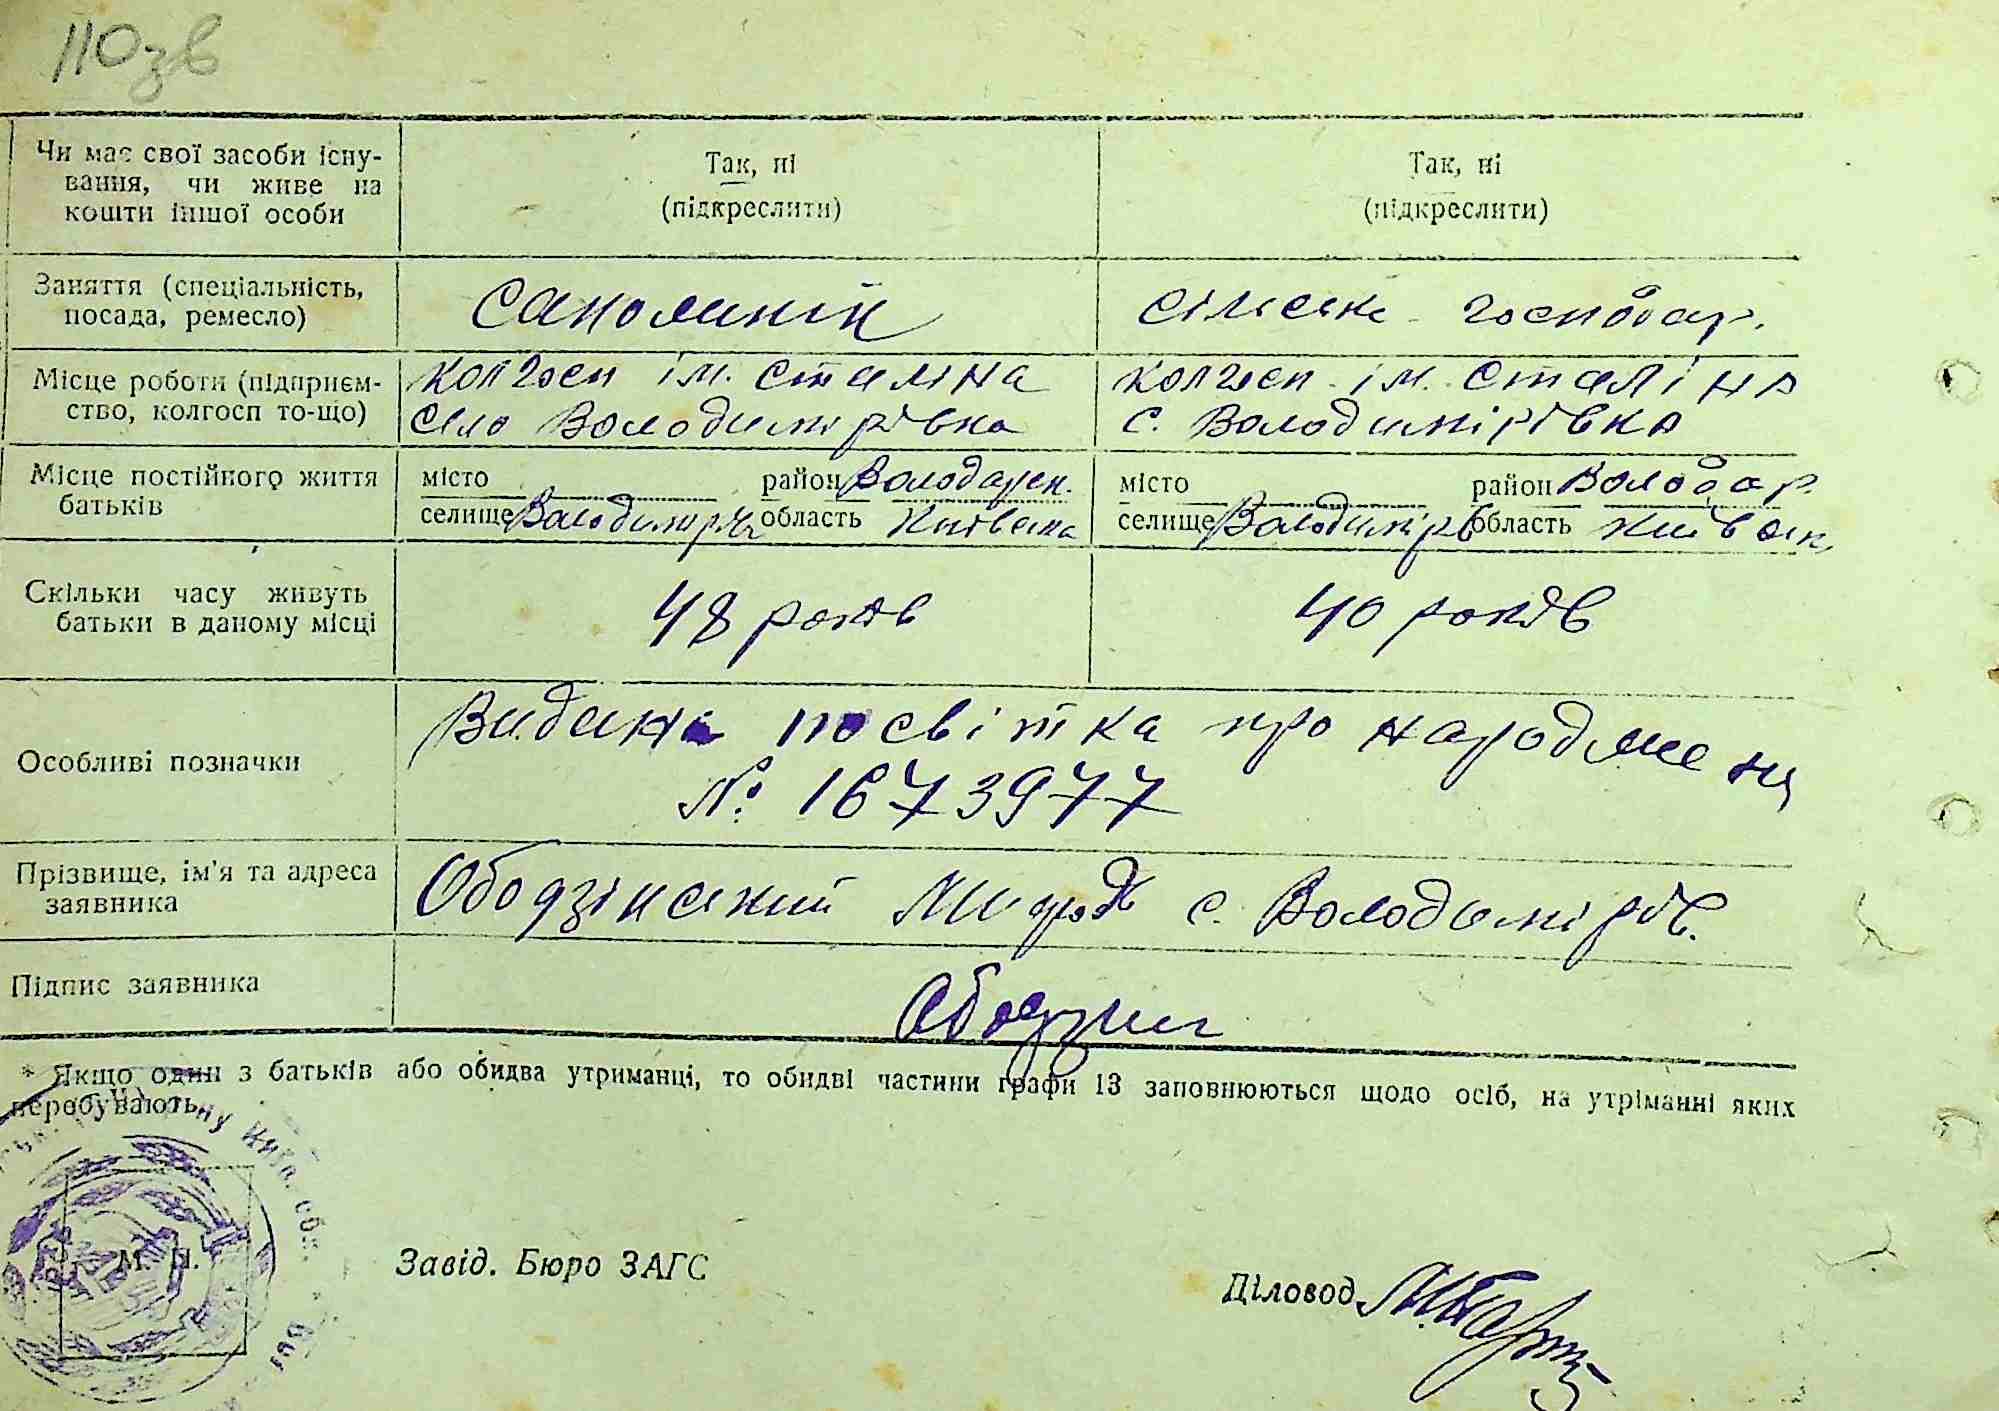 110зв
Чи має свої засоби існу-
вання, чи живе на
кошти іншої особи
Так, ні
(підкреслити)
Так, ні
(підкреслити)
Заняття (спеціальність,
посада, ремесло)
сільське господар.
Місце роботи (підприєм-
ство, колгосп то-що)
колгосп ім. Сталіна
село Володимирівка
колгосп ім. Сталіна
с. Володимірівка
Місце постійного життя
батьків
місто район Володарськ.
селище Володимир область Київська
місто район Володар.
селище Володимірів область Київськ.
Скільки часу живуть
батьки в даному місці
48 років
40 років
Особливі позначки
Видана посвітка про народжена
№ 1673977
Прізвище, ім'я та адреса
заявника
Ободзінський с. Володимірів.
Підпис заявника
* Якщо один з батьків або обидва утриманці, то обидві частини графи 13 заповнюються щодо осіб, на утриманні яких
перебувають.
М. П.
Завід. Бюро ЗАГС
Діловод